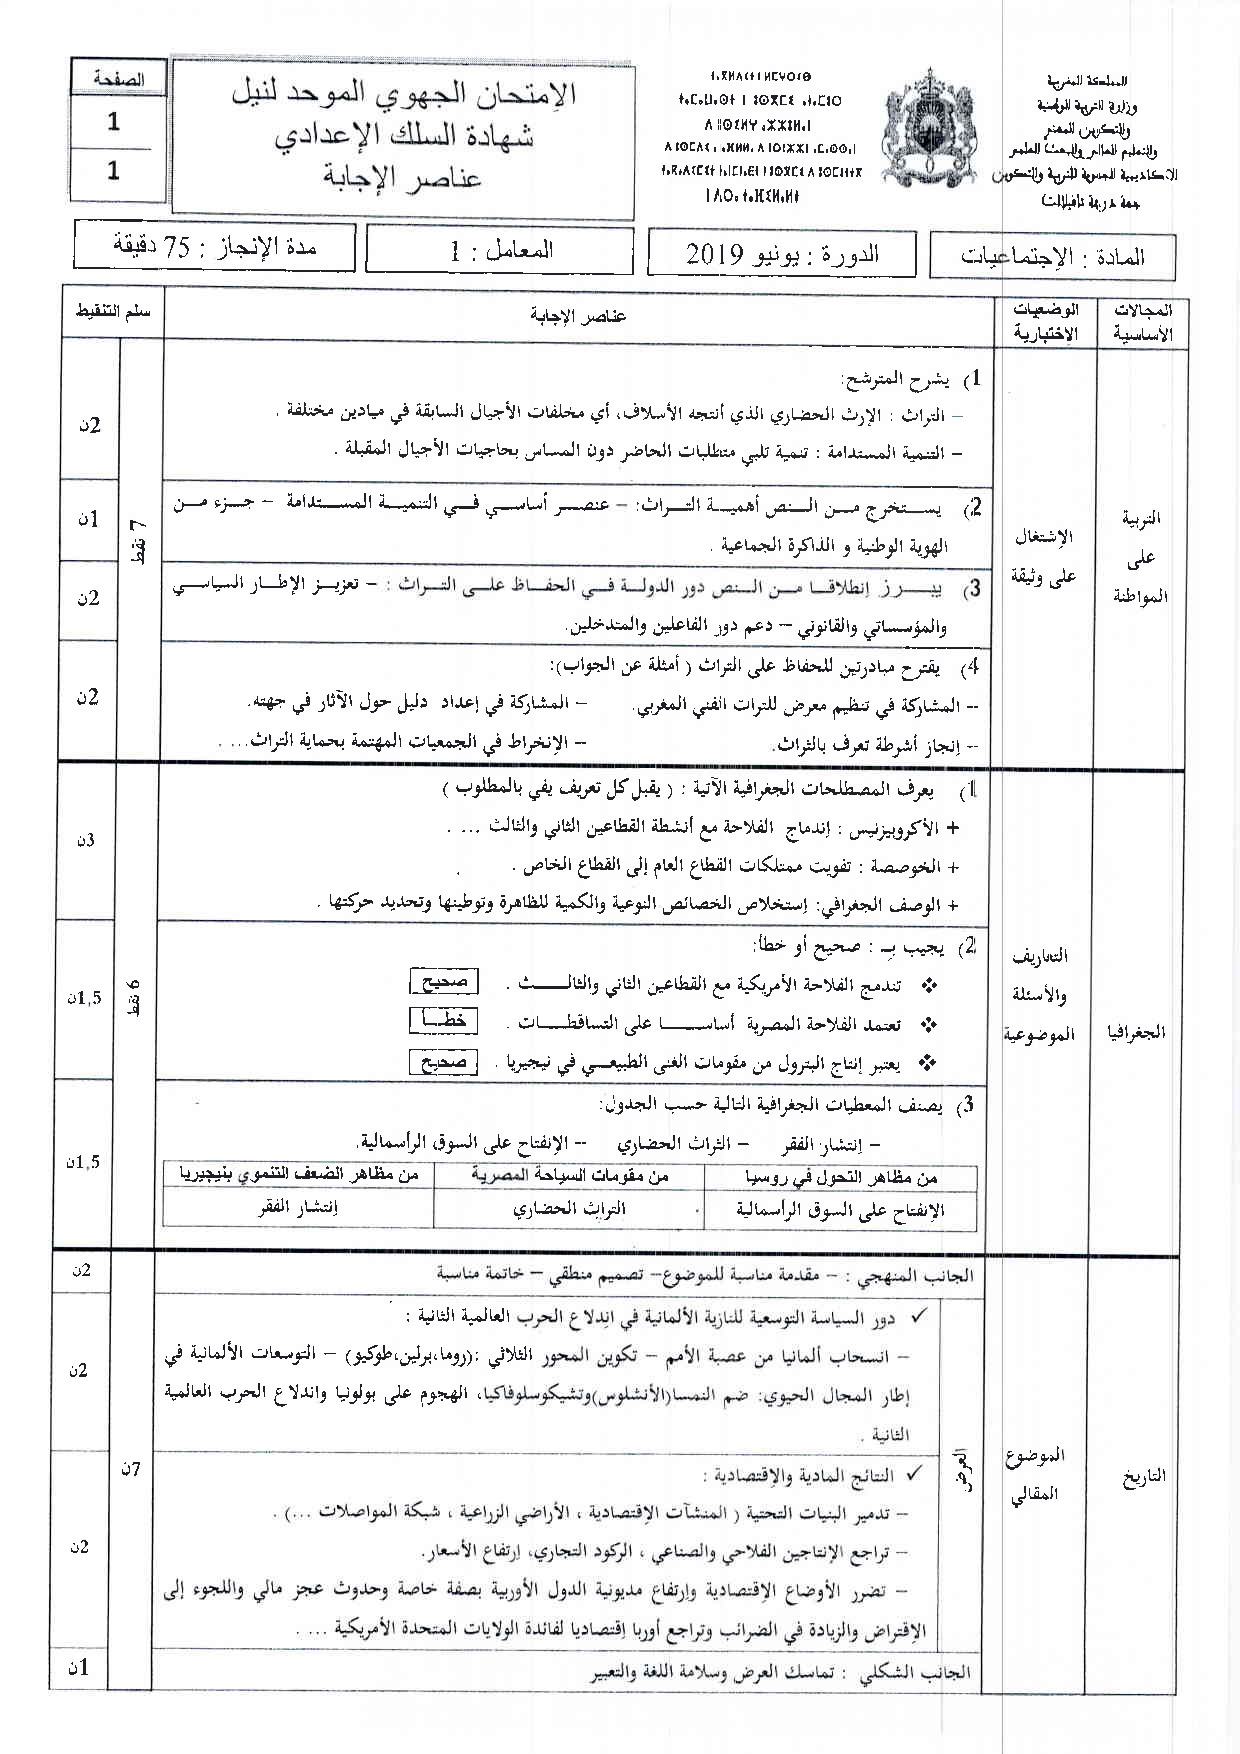 المملكة المغربية
وزارة التربية الوطنية
والتكوين المهني
والتعليم العالي والبحث العلمي
الاكاديمية الجهوية للتربية والتكوين
جهة درعة تافيلالت
الامتحان الجهوي الموحد لنيل
شهادة السلك الإعدادي
عناصر الإجابة
الصفحة
1
1
المادة : الإجتماعيات
الدورة : يونيو 2019
المعامل : 1
مدة الإنجاز : 75 دقيقة
المجالات الأساسية
الوضعيات الإختبارية
عناصر الإجابة
سلم التنقيط
التربية على المواطنة
الإشتغال على وثيقة
7 نقط
1) يشرح المترشح:
– التراث : الإرث الحضاري الذي أنتجه الأسلاف، أي مخلفات الأجيال السابقة في ميادين مختلفة .
– التنمية المستدامة : تنمية تلبي متطلبات الحاضر دون المساس بحاجيات الأجيال المقبلة .
2ن
2) يستخرج من النص أهمية التراث: – عنصر أساسي في التنمية المستدامة – جزء من
الهوية الوطنية و الذاكرة الجماعية .
1ن
3) يبرز إنطلاقا من النص دور الدولة في الحفاظ على التراث : – تعزيز الإطار السياسي
والمؤسساتي والقانوني – دعم دور الفاعلين والمتدخلين.
2ن
4) يقترح مبادرتين للحفاظ على التراث ( أمثلة عن الجواب):
– المشاركة في تنظيم معرض للتراث الفني المغربي. – المشاركة في إعداد دليل حول الآثار في جهته.
– إنجاز أشرطة تعرف بالتراث. – الإنخراط في الجمعيات المهتمة بحماية التراث... .
2ن
الجغرافيا
التعاريف والأسئلة الموضوعية
6 نقط
1) يعرف المصطلحات الجغرافية الآتية : ( يقبل كل تعريف يفي بالمطلوب )
+ الأكروبيزنيس : إندماج الفلاحة مع أنشطة القطاعين الثاني والثالث ... .
+ الخوصصة : تفويت ممتلكات القطاع العام إلى القطاع الخاص .
+ الوصف الجغرافي: إستخلاص الخصائص النوعية والكمية للظاهرة وتوطينها وتحديد حركتها .
3ن
2) يجيب بـ : صحيح أو خطأ:
❖ تندمج الفلاحة الأمريكية مع القطاعين الثاني والثالث . صحيح
❖ تعتمد الفلاحة المصرية أساسا على التساقطات . خطأ
❖ يعتبر إنتاج البترول من مقومات الغنى الطبيعي في نيجيريا . صحيح
1,5ن
3) يصنف المعطيات الجغرافية التالية حسب الجدول:
– إنتشار الفقر – التراث الحضاري – الإنفتاح على السوق الرأسمالية.
من مظاهر التحول في روسيا من مقومات السياحة المصرية من مظاهر الضعف التنموي بنيجيريا
الإنفتاح على السوق الرأسمالية التراث الحضاري إنتشار الفقر
1,5ن
التاريخ
الموضوع المقالي
7ن
الجانب المنهجي : – مقدمة مناسبة للموضوع– تصميم منطقي – خاتمة مناسبة
2ن
العرض
✓ دور السياسة التوسعية للنازية الألمانية في اندلاع الحرب العالمية الثانية :
– انسحاب ألمانيا من عصبة الأمم – تكوين المحور الثلاثي :(روما،برلين،طوكيو) – التوسعات الألمانية في
إطار المجال الحيوي: ضم النمسا(الأنشلوس)وتشيكوسلوفاكيا، الهجوم على بولونيا واندلاع الحرب العالمية
الثانية .
2ن
✓ النتائج المادية والإقتصادية :
– تدمير البنيات التحتية ( المنشآت الإقتصادية ، الأراضي الزراعية ، شبكة المواصلات ...) .
– تراجع الإنتاجين الفلاحي والصناعي ، الركود التجاري، إرتفاع الأسعار.
– تضرر الأوضاع الإقتصادية وإرتفاع مديونية الدول الأوربية بصفة خاصة وحدوث عجز مالي واللجوء إلى
الإقتراض والزيادة في الضرائب وتراجع أوربا إقتصاديا لفائدة الولايات المتحدة الأمريكية ... .
2ن
الجانب الشكلي : تماسك العرض وسلامة اللغة والتعبير
1ن